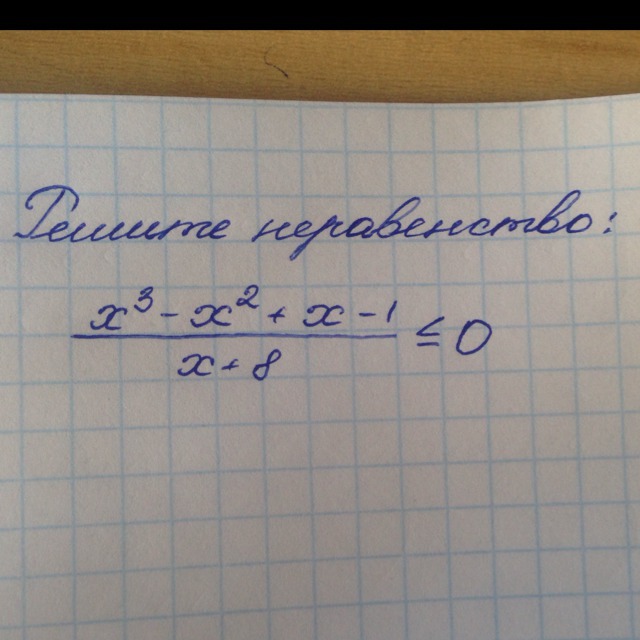 Решите неравенство:
x³ - x² + x - 1
x + 8
≤ 0